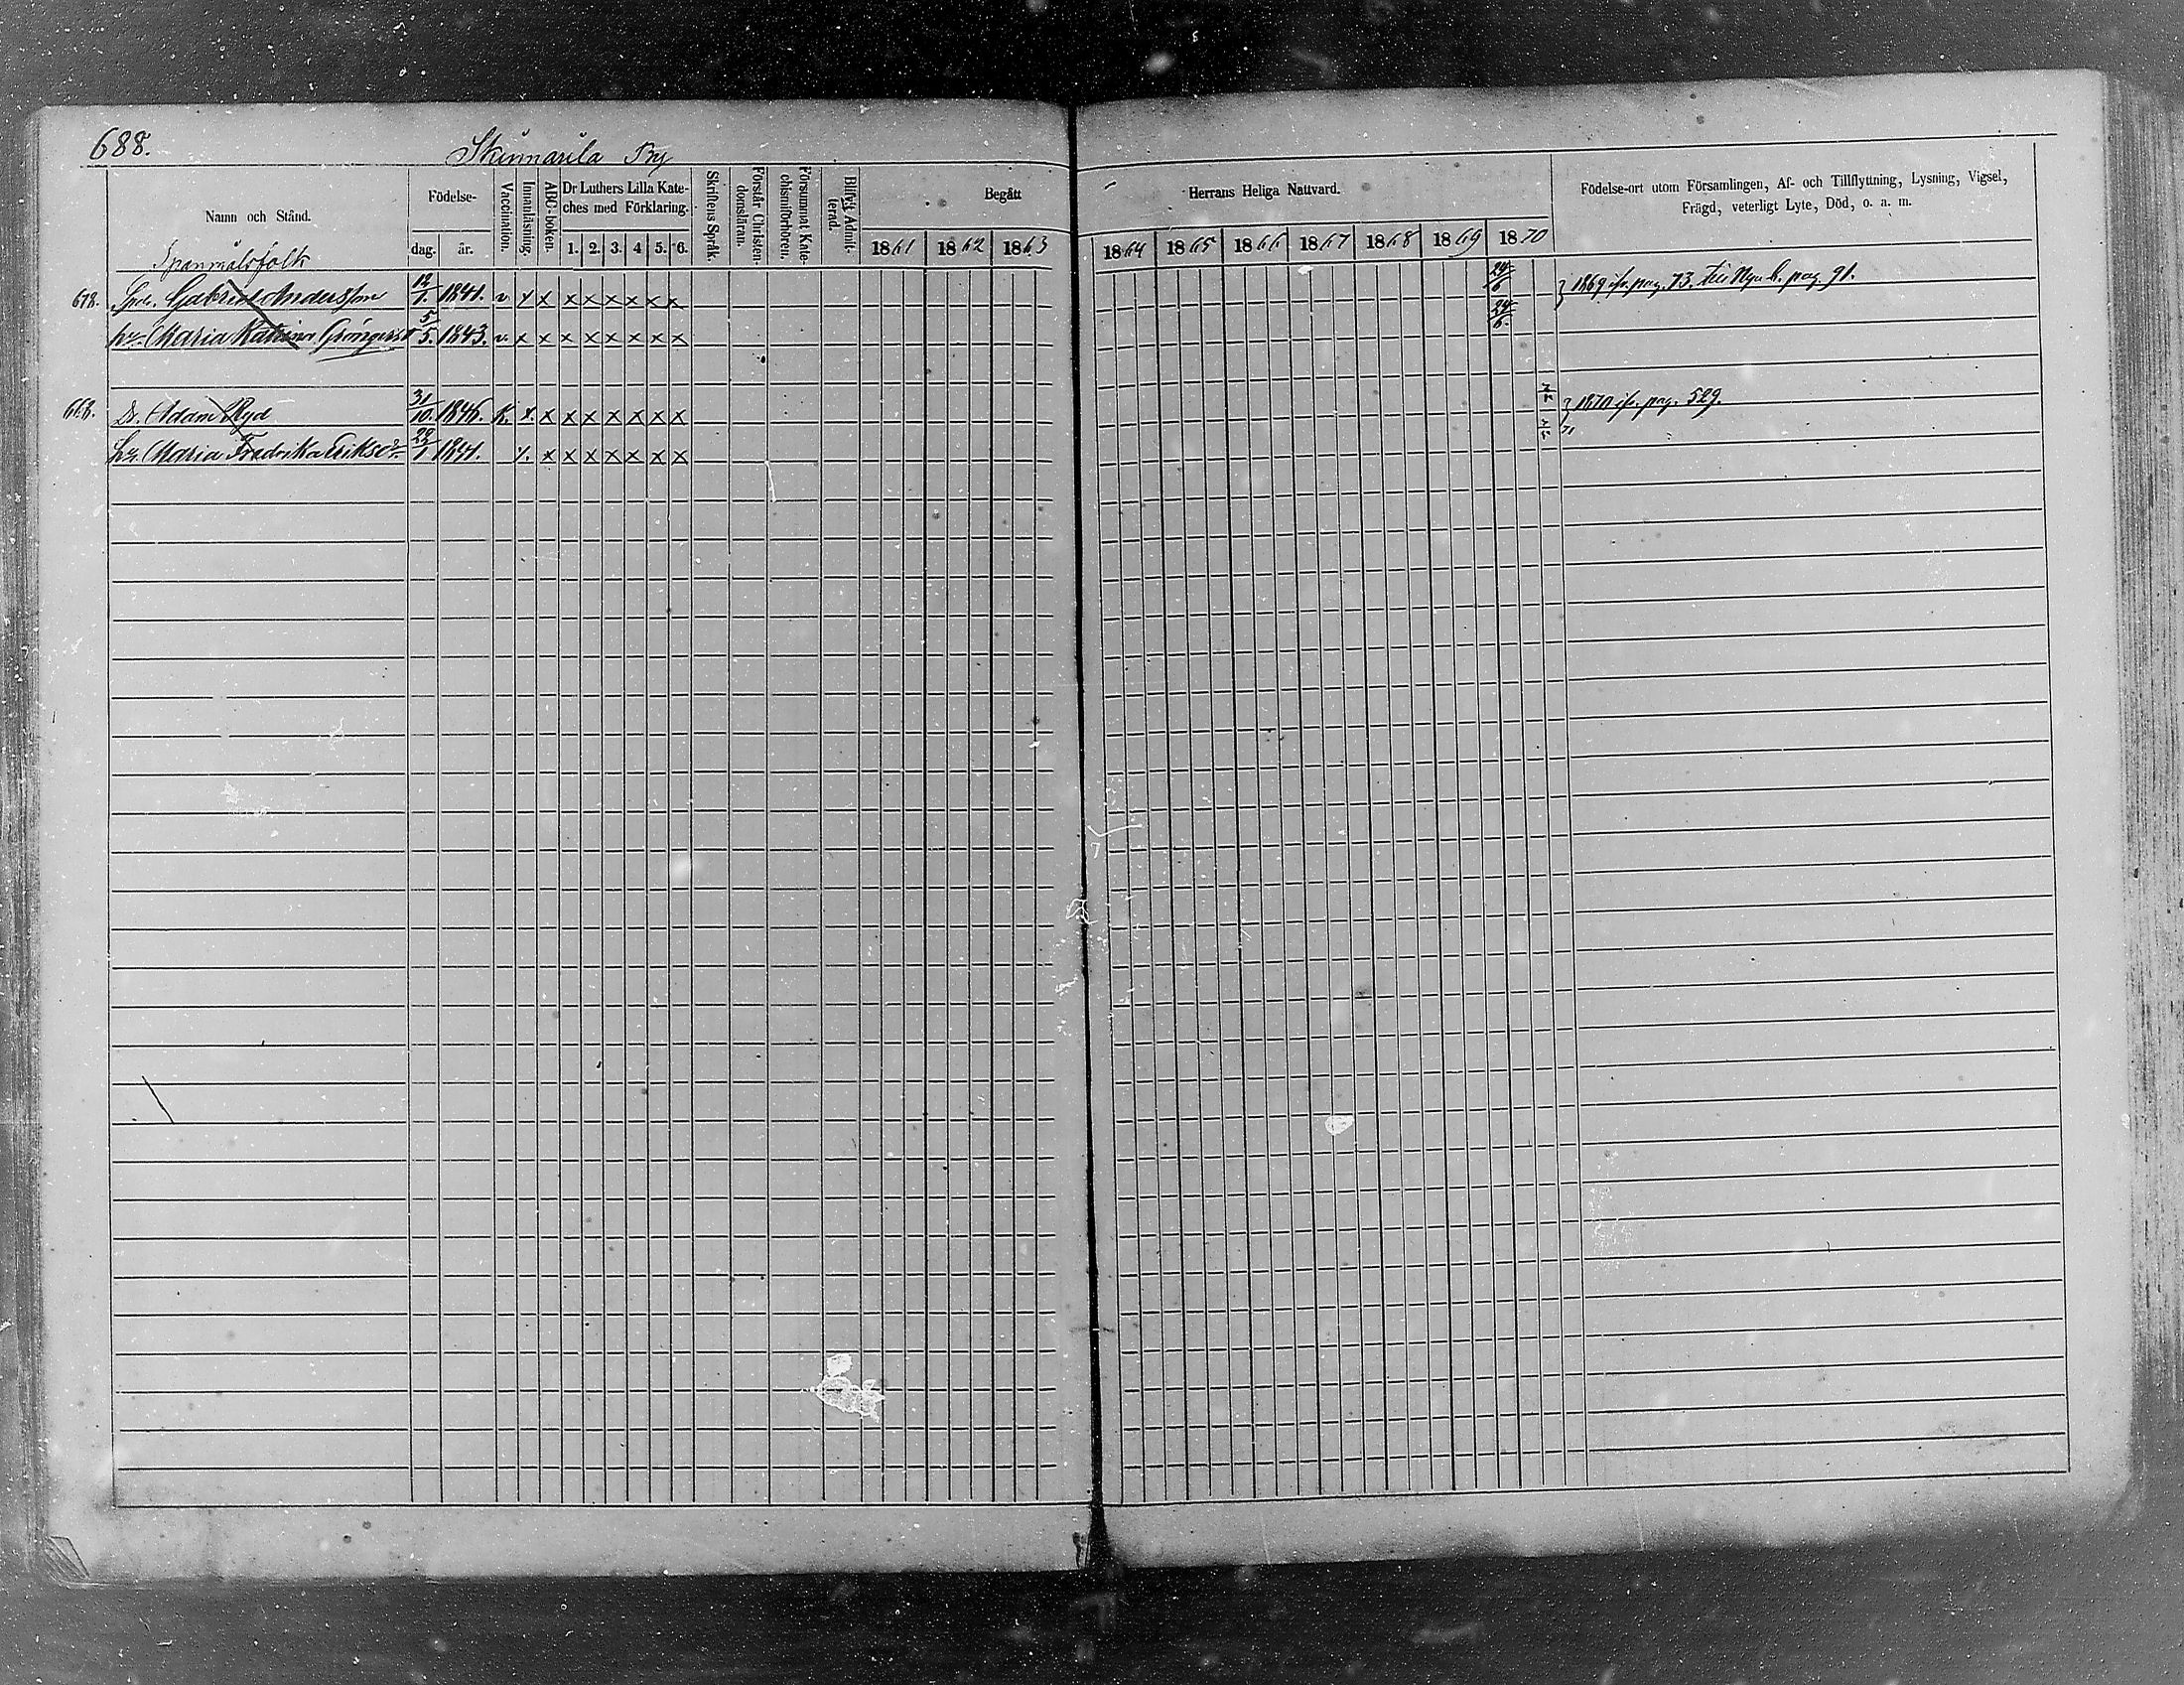 688.
Skinnarila By
Namn och Stånd.
Födelse-
dag. år.
Vaccination.
Innanläsning.
ABC-boken.
Dr Luthers Lilla Kate-
ches med Förklaring.
1. 2. 3. 4 5. 6.
Skriftens Språk.
Förstår Christen-
domsläran.
Försummat Kate-
chismiförhören.
Blifvit Admit-
terad.
Begått
Herrans Heliga Nattvard.
1861 1862 1863
1864 1865 1866 1867 1868 1869 1870
Födelse-ort utom Församlingen, Af- och Tillflyttning, Lysning, Vigsel,
Frägd, veterligt Lyte, Död, o. a. m.
Spanmålsfolk
678. Gabriel Andersson 12/1. 1841. v x x x x x x x x 24/6 1869 ifr. pag. 73. till Nya b. pag. 91.
hu. Maria Katrina 5/5. 1843. v x x x x x x x x 24/6.
668. Dr. Adam Ryd 31/10. 1846. K. x. x x x x x x x 1870 ifr. pag. 529.
hu. Maria Fredrika Eriksdr 22/1 1841. x. x x x x x x x